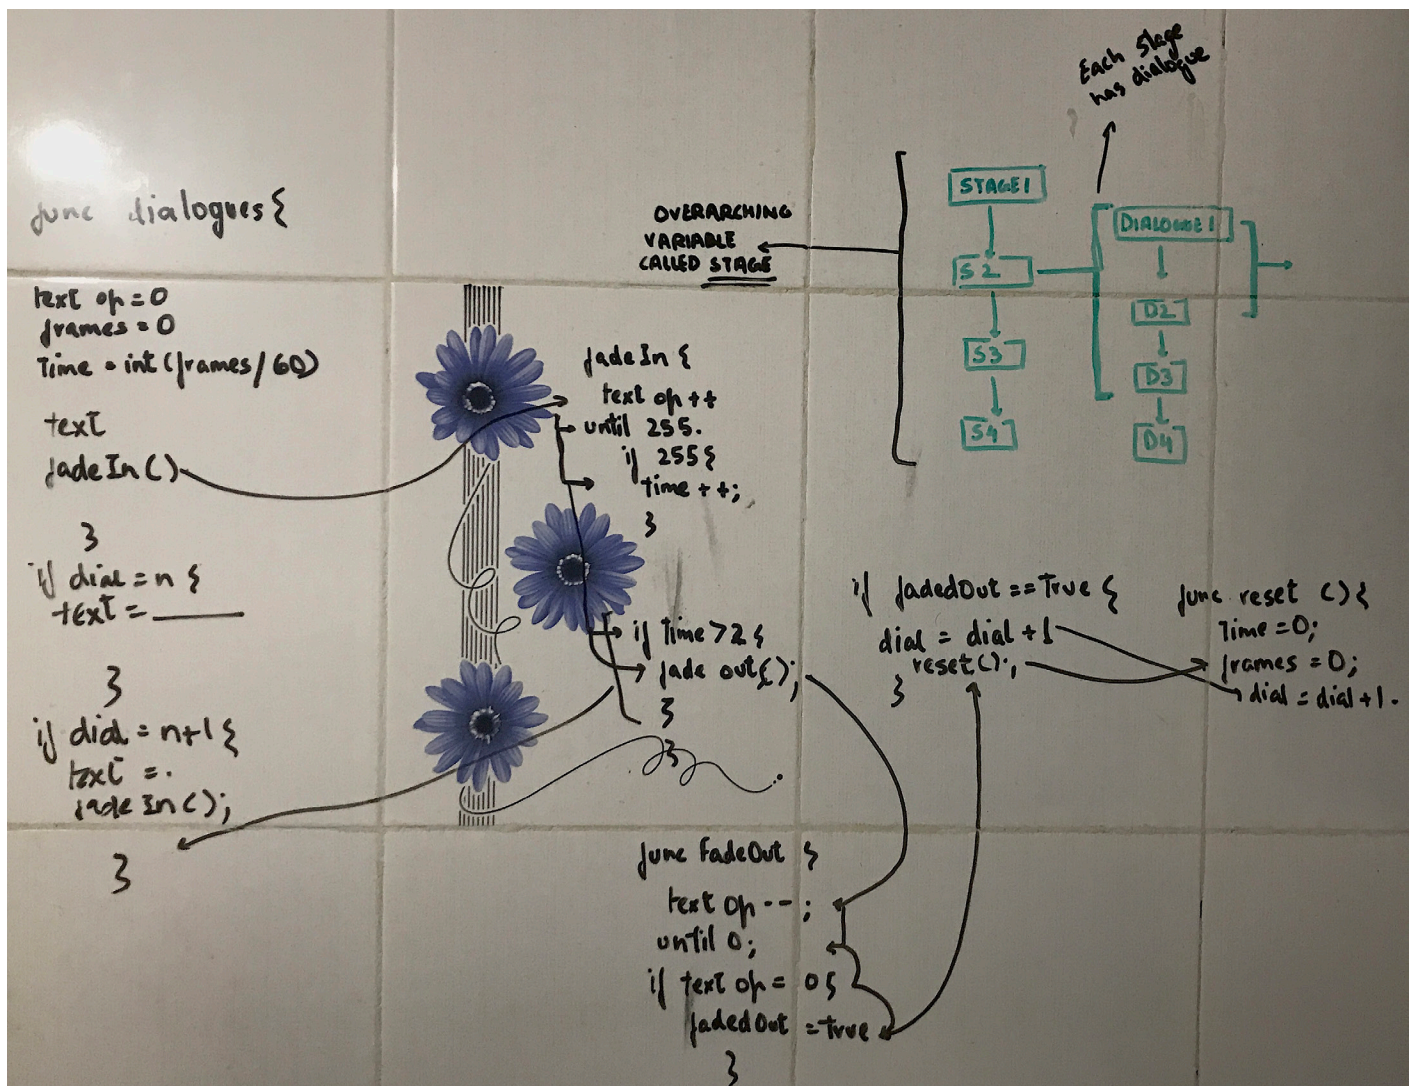 func dialogues {
text op = 0
frames = 0
Time = int (frames / 60)
text
fadeIn ( )
}
if dial = n {
text = ______
}
if dial = n+1 {
text = .
fadeIn ( );
}
fadeIn {
text op ++
until 255.
if 255 {
time ++;
}
if Time > 2 {
fade out( );
}
}
func FadeOut {
text op -- ;
until 0;
if text op = 0 {
fadedOut = True
}
if fadedOut == True {
dial = dial + 1
reset ( );
}
func reset ( ) {
Time = 0;
frames = 0;
dial = dial + 1.
OVERARCHING
VARIABLE
CALLED STAGE
STAGE 1
S2
S3
S4
Each Stage
has dialogue
DIALOGUE 1
D2
D3
D4